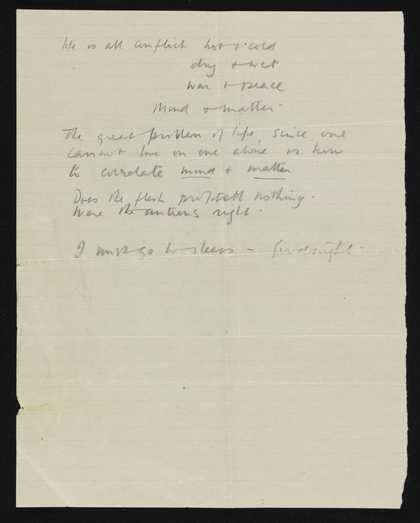 life is all conflict hot & cold
dry & wet
war & peace
Mind & matter.
The great problem of life, since one
cannot live on one alone is how
to correlate mind & matter
Does the flesh profiteth nothing.
Were the right.
I must go to sleep – Goodnight.